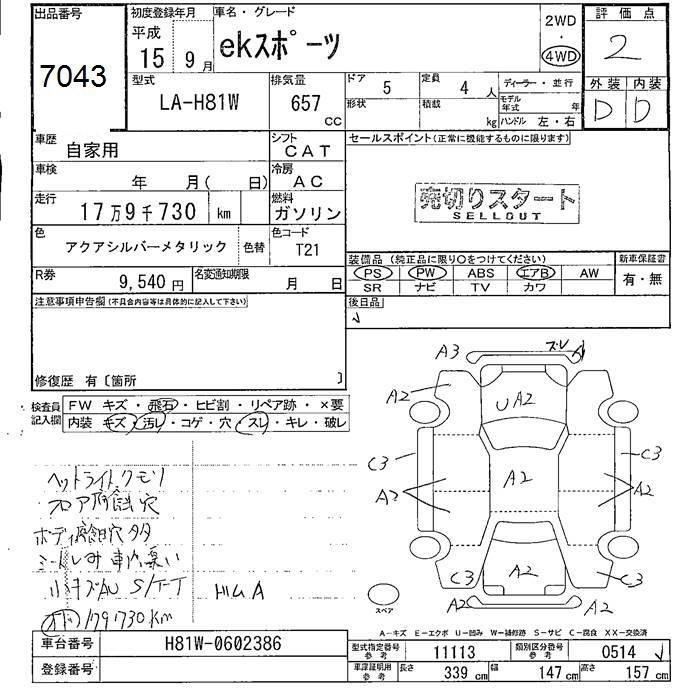 出品番号
7043
初度登録年月
平成
15 9月
車名・グレード
ekスポーツ
2WD
・
4WD
評価点
2
型式
LA-H81W
排気量
657 cc
ドア 5
定員 4 人
ディーラー・並行
形状
積載 kg
モデル年式 年
ハンドル 左・右
外装 内装
D D
車歴
自家用
シフト
CAT
セールスポイント(正常に機能するものに限ります)
車検
年 月( 日)
冷房
AC
走行
17万9千730 km
燃料
ガソリン
売切りスタート
SELLOUT
色
アクアシルバーメタリック
色替
色コード
T21
装備品(純正品に限り○をつけてください)
新車保証書
PS PW ABS エアB AW
SR ナビ TV カワ
有・無
R券
9,540 円
名変通知期限
月 日
後日品
注意事項申告欄(不具合内容等は具体的に記入して下さい)
修復歴 有〔箇所 〕
検査員記入欄
FW キズ・飛石・ヒビ割・リペア跡・×要
内装 キズ・汚レ・コゲ・穴・スレ・キレ・破レ
ヘットライトクモリ
フロア腐蝕穴
ボディ腐蝕穴多々
シートしみ 車内臭い
キズAU S/T-T
179,730Km
A3
ズレ
A2
U A2
C3
C3
A2
A2
A2
C3
A2
C3
A2
A2
スペア
A-キズ E-エクボ U-凹み W-補修跡 S-サビ C-腐食 XX-交換済
車台番号 H81W-0602386
登録番号
型式指定番号 参考 11113
類別区分番号 参考 0514
車庫証明用 参考 長さ 339 cm 幅 147 cm 高さ 157 cm